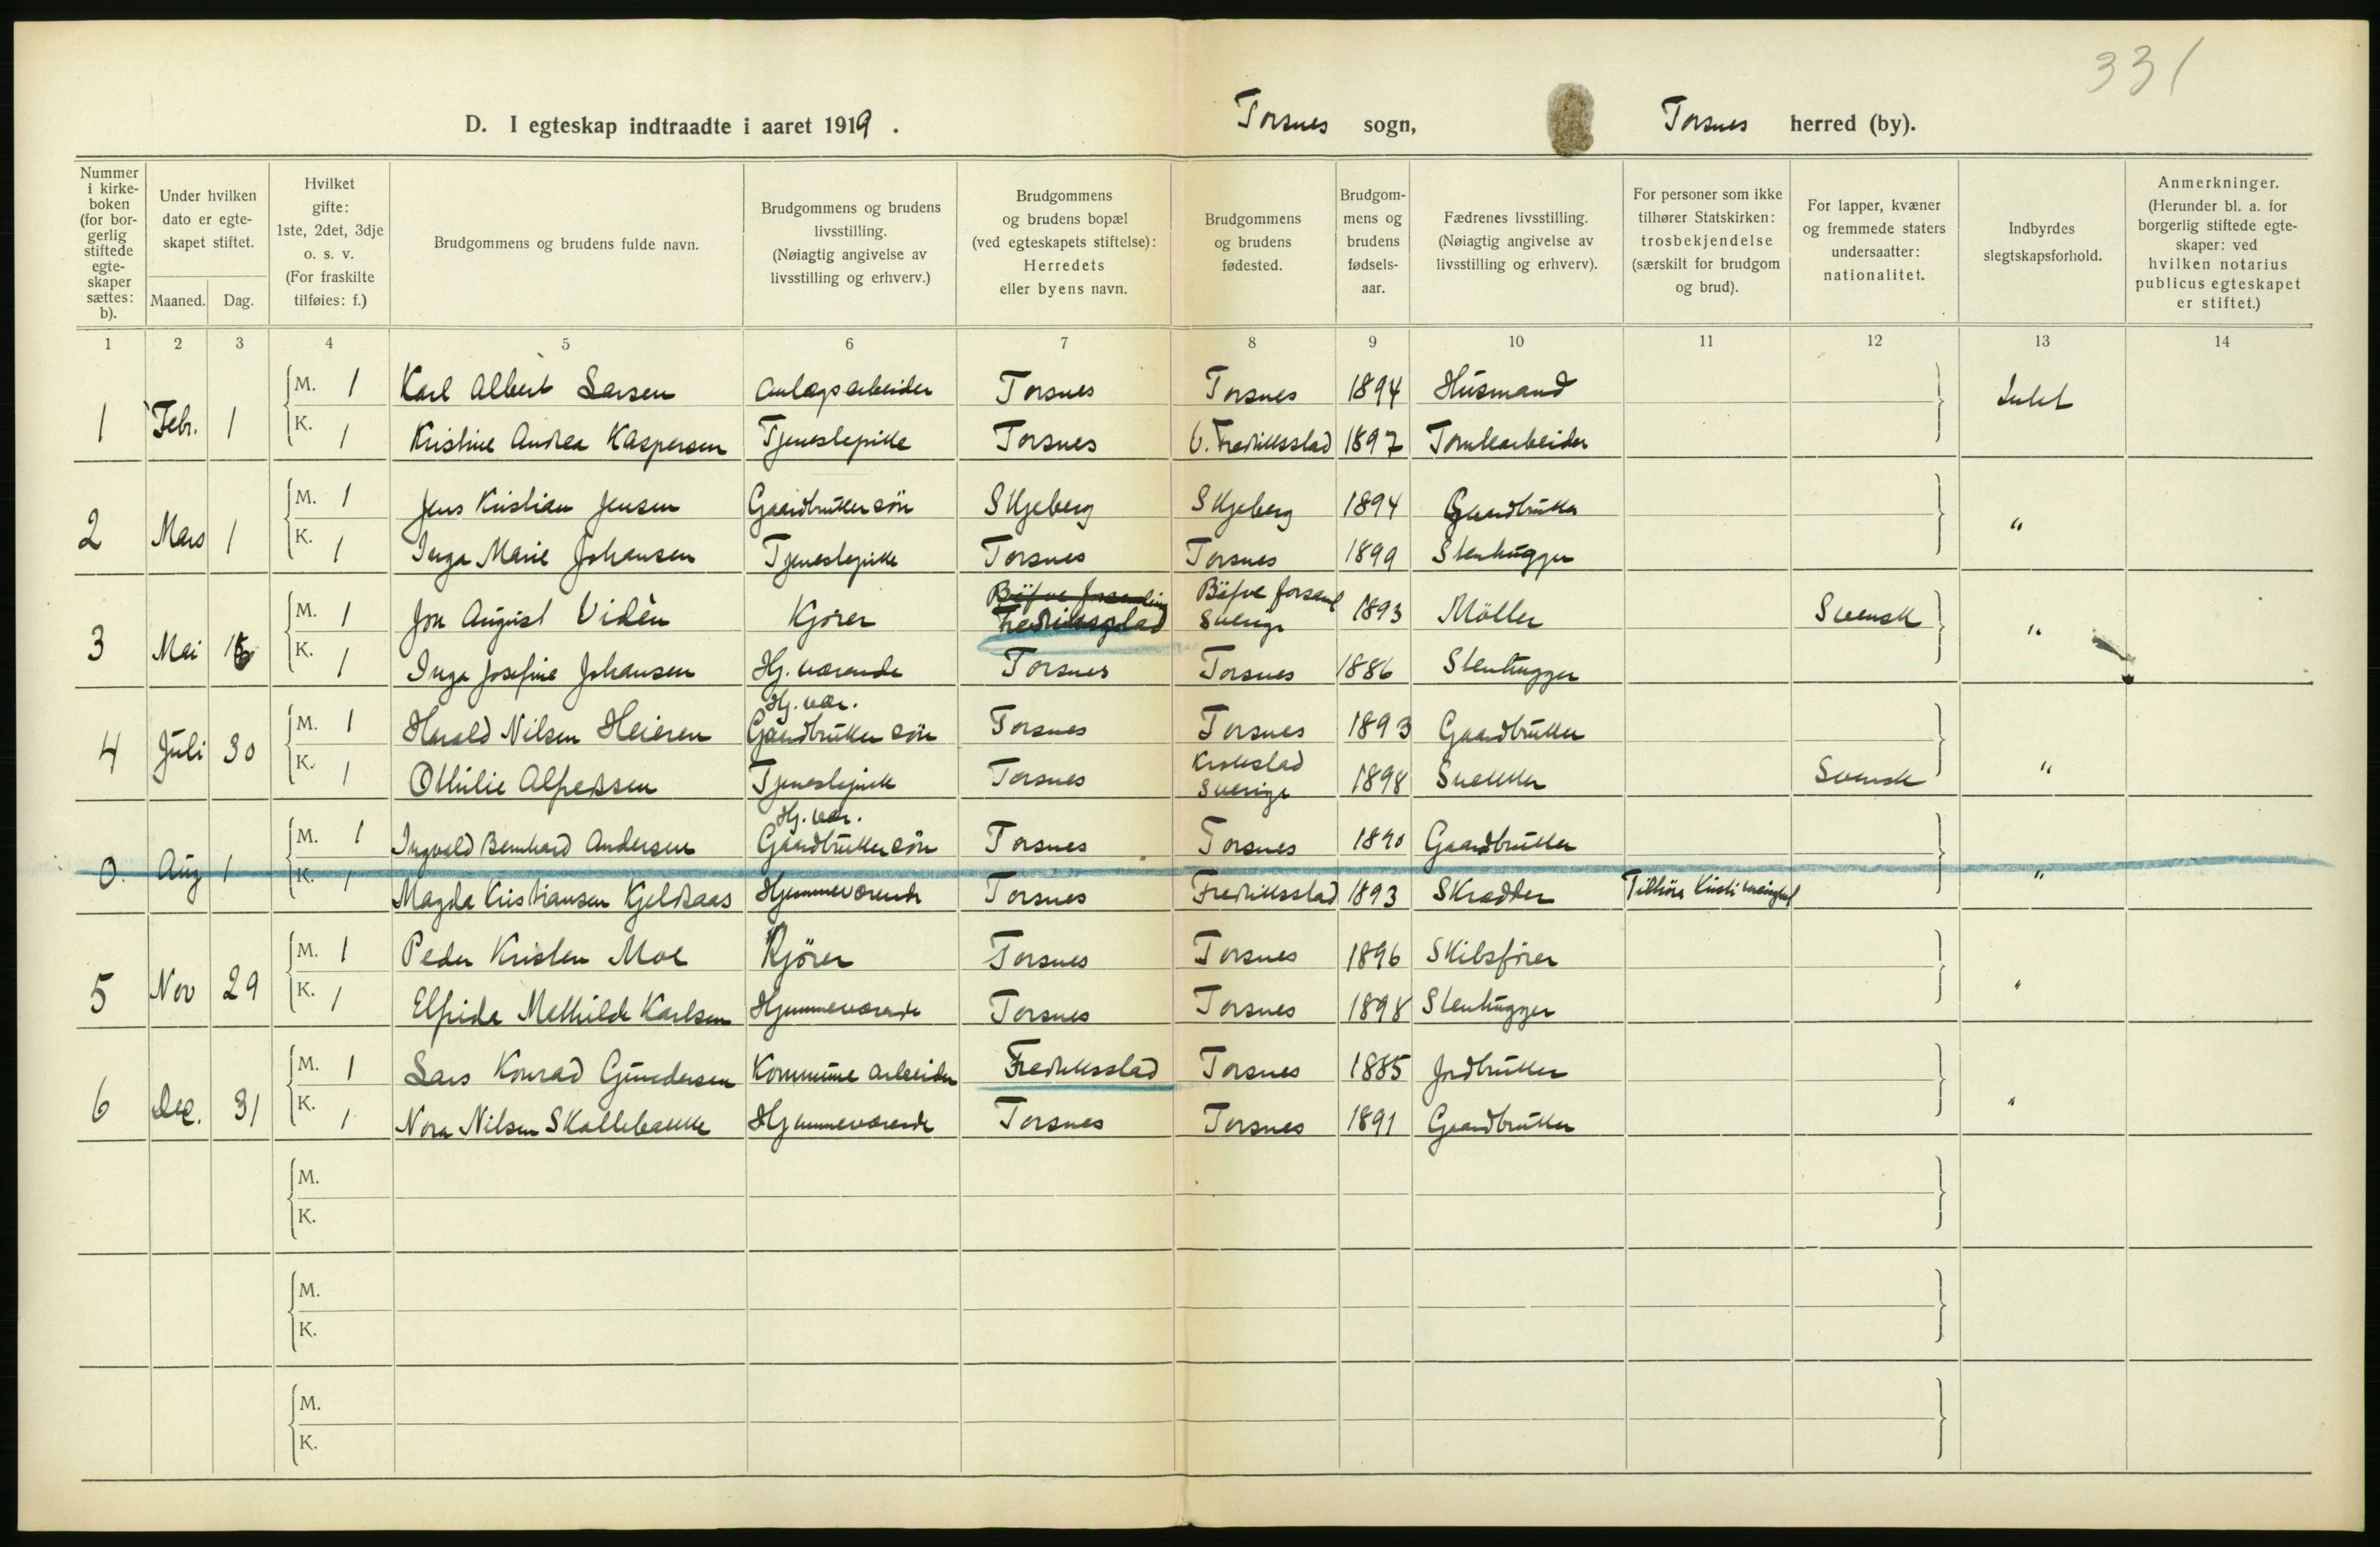 331
D. I egteskap indtraadte i aaret 1919. Torsnes sogn, Torsnes herred (by).
Nummer i kirkeboken (for borgerlig stiftede egteskaper sættes: b).
Under hvilken dato er egteskapet stiftet.
Maaned. Dag.
Hvilket gifte: 1ste, 2det, 3dje o. s. v. (For fraskilte tilføies: f.)
Brudgommens og brudens fulde navn.
Brudgommens og brudens livsstilling. (Nøiagtig angivelse av livsstilling og erhverv.)
Brudgommens og brudens bopæl (ved egteskapets stiftelse): Herredets eller byens navn.
Brudgommens og brudens fødested.
Brudgommens og brudens fødselsaar.
Fædrenes livsstilling. (Nøiagtig angivelse av livsstilling og erhverv).
For personer som ikke tilhører Statskirken: trosbekjendelse (særskilt for brudgom og brud).
For lapper, kvæner og fremmede staters undersaatter: nationalitet.
Indbyrdes slegtskapsforhold.
Anmerkninger. (Herunder bl. a. for borgerlig stiftede egteskaper: ved hvilken notarius publicus egteskapet er stiftet.)
1 2 3 4 5 6 7 8 9 10 11 12 13 14
1 Febr. 1 M. 1 Karl Albert Larsen Anlægsarbeider Torsnes Torsnes 1894 Husmand Intet
K. 1 Kristine Andrea Kaspersen Tjenestepike Torsnes Ø. Fredriksstad 1897 Tomtearbeider
2 Mars 1 M. 1 Jens Kristian Jensen Gaardbruker søn Skjeberg Skjeberg 1894 Gaardbruker "
K. 1 Inga Marie Johansen Tjenestepike Torsnes Torsnes 1899 Stenhugger
3 Mai M. 1 Jon August Vidèn Kjører Bäfve forsamling Fredriksstad Bäfve forsaml Sverige 1893 Möller Svensk "
K. 1 Inga Josefine Johansen Hj. værende Torsnes Torsnes 1886 Stenhugger
4 Juli 30 M. 1 Harald Nilsen Heieren Hj. vær. Gaardbruker søn Torsnes Torsnes 1893 Gaardbruker
K. 1 Othilie Alfredssen Tjenestepike Torsnes Krokstad Sverige 1898 Snekker Svensk "
0. Aug 1 M. 1 Ingvald Bernhard Andersen Hj. vær. Gaardbruker søn Torsnes Torsnes 1890 Gaardbruker "
K. 1 Magda Kristiansen Kjeldsaas Hjemmeværende Torsnes Fredriksstad 1893 Skrædder Tilhører
5 Nov 29 M. 1 Peder Kristen Moe Kjører Torsnes Torsnes 1896 Skibsfører "
K. 1 Elfrida Mathilde Karlsen Hjemmeværende Torsnes Torsnes 1898 Stenhugger
6 Dec. 31 M. 1 Lars Konrad Gundersen Kommune arbeider Fredriksstad Torsnes 1885 Jordbruker "
K. 1 Nora Nilsen Skallebække Hjemmeværende Torsnes Torsnes 1891 Gaardbruker
M.
K.
M.
K.
M.
K.